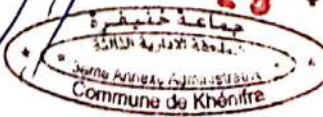 جماعة خنيفرة
ملحقة الادارية الثالثة
3ème Annexe Administrative
Commune de Khénifra